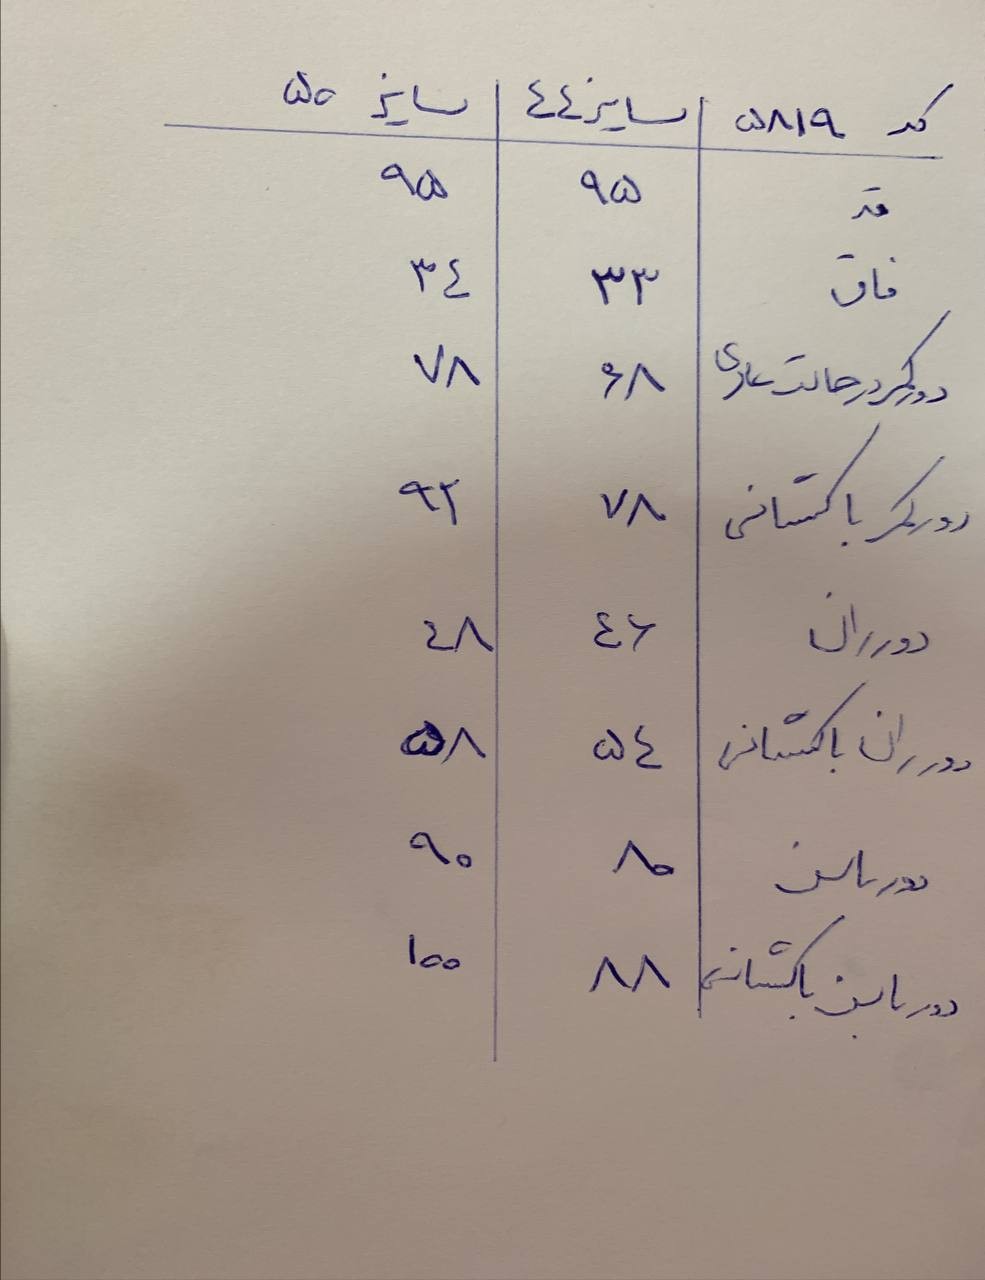 کد ۵۸۱۹ سایز ۴۴ سایز ۵۰
قد ۹۵ ۹۵
فاق ۳۳ ۳۴
دور کمر در حالت عادی ۶۸ ۷۸
دور کمر با کشسانی ۷۸ ۹۲
دور ران ۴۶ ۴۸
دور ران با کشسانی ۵۴ ۵۸
دور باسن ۸۰ ۹۰
دور باسن با کشسانی ۸۸ ۱۰۰